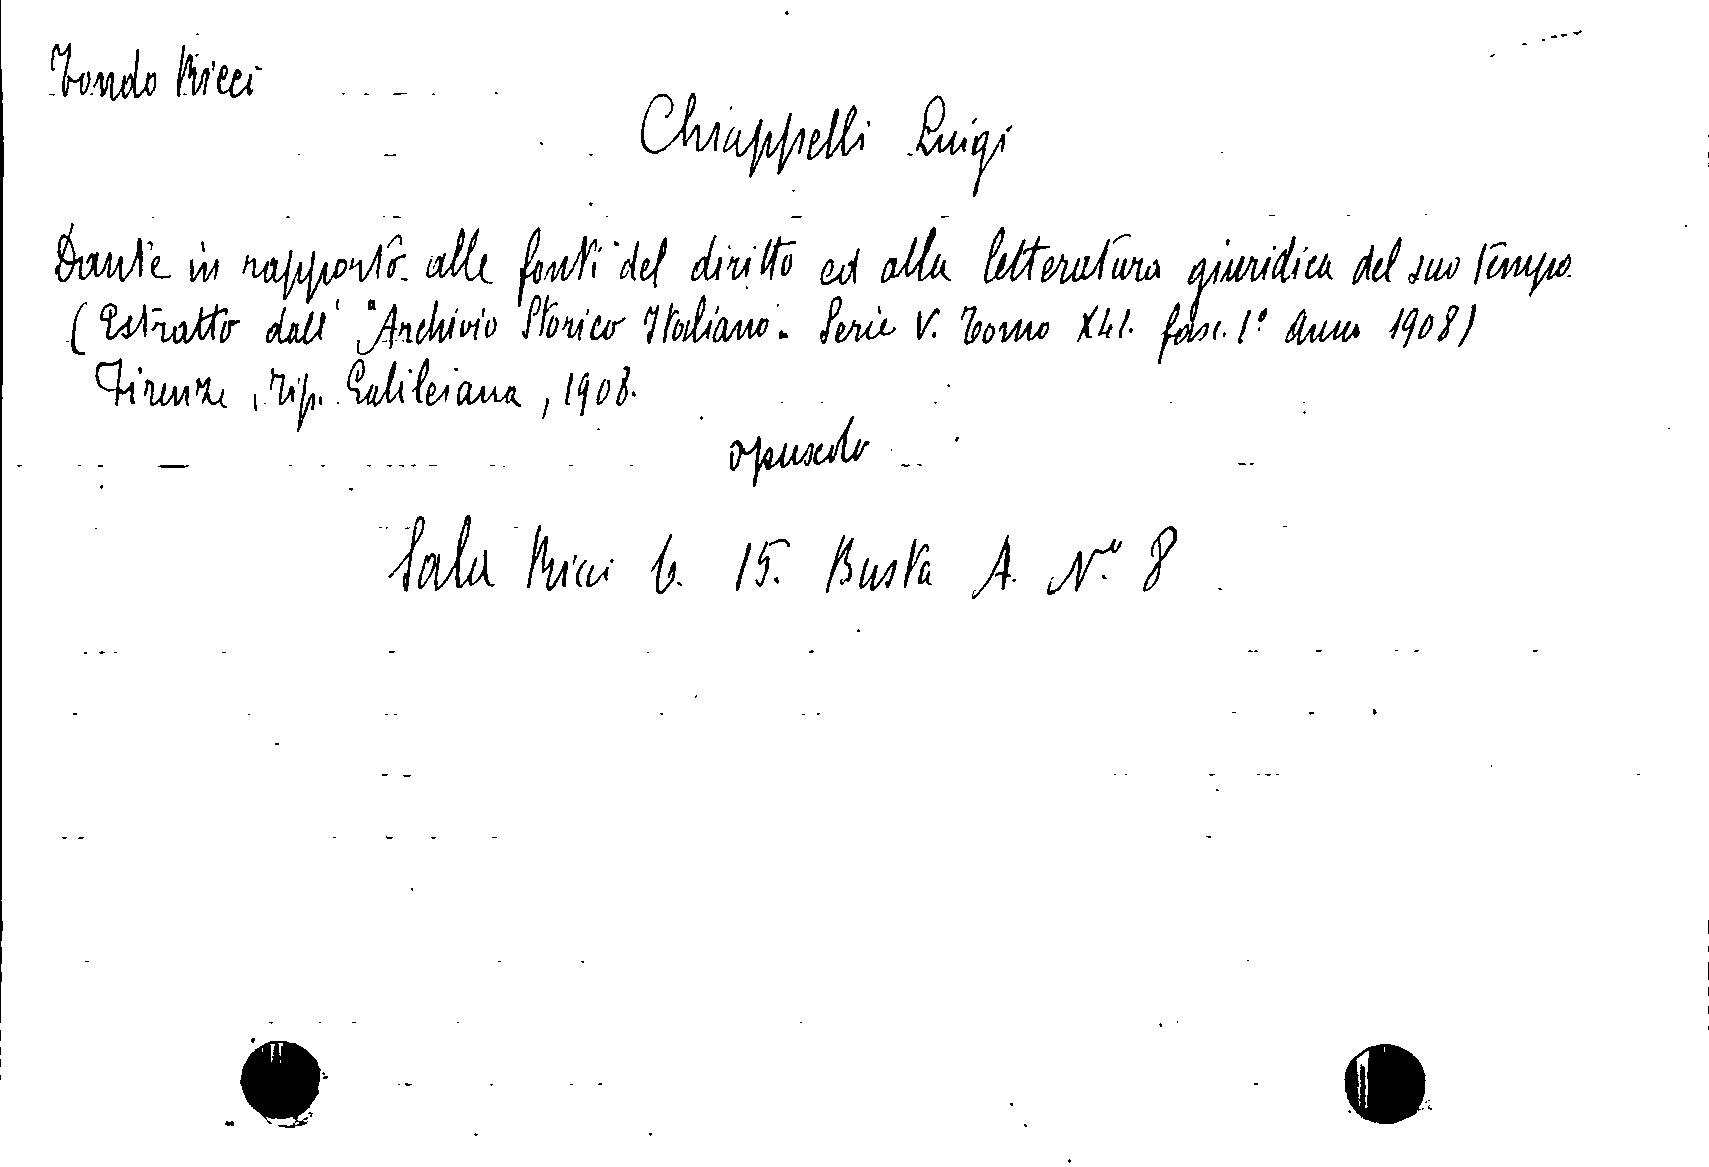 Fondo Ricci
Chiappelli Luigi
Dante in rapporto alle fonti del diritto ed alla letteratura giuridica del suo tempo.
(Estratto dall' "Archivio Storico Italiano. Serie V. Tomo XLI. fasc. 1° Anno 1908)
Firenze, Tip. Galileiana, 1908.
opuscolo
Sala Ricci 6. 15. Busta A. N.° 8